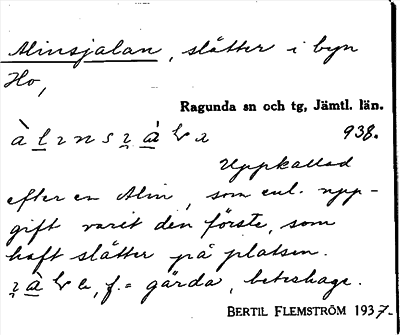 Alinsjalan, slåtter i byn
Ho,
Ragunda sn och tg, Jämtl. län.
938.
Uppkallad
efter en Alin, som enl. upp-
gift varit den förste, som
haft slåtter på platsen.
f. = gärda, beteshage.
BERTIL FLEMSTRÖM 1937-